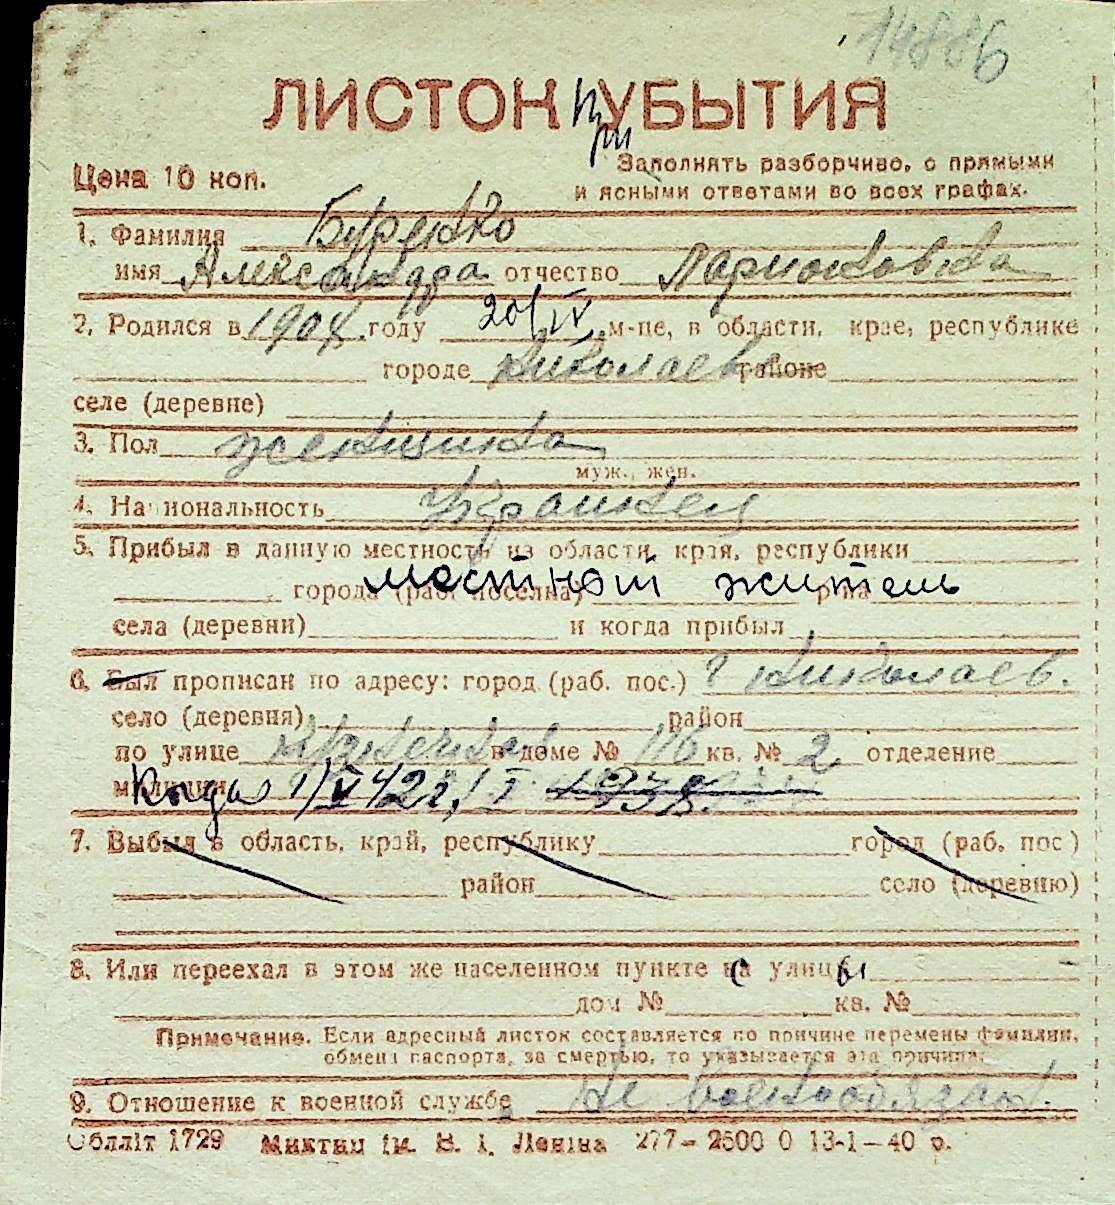 14886
ЛИСТОК при УБЫТИЯ
Цена 10 коп.
Заполнять разборчиво, с прямыми
и ясными ответами во всех графах.
1. Фамилия Буренко
имя Александра отчество Ларионовна
2. Родился в 1904 году 20/IV м-це, в области, крае, республике
городе Николаеве районе
селе (деревне)
3. Пол женщина
муж., жен.
4. Национальность Украинец
5. Прибыл в данную местность из области, края, республики
города (раб. поселка) местный житель р-на
села (деревни) и когда прибыл
6. Был прописан по адресу: город (раб. пос.) г Николаев.
село (деревня) район
по улице в доме № 116 кв. № 2 отделение
милиции Когда 1/V 42 г. 1938.
7. Выбыл в область, край, республику город (раб. пос)
район село (деревню)
8. Или переехал в этом же населенном пункте с улицы
дом № кв. №
Примечание. Если адресный листок составляется по причине перемены фамилии,
обмена паспорта, за смертью, то указывается эта причина.
9. Отношение к военной службе Не военнообязан.
Облліт 1729 Миктип ім. В. І. Леніна 277 – 2600 0 13-1–40 р.